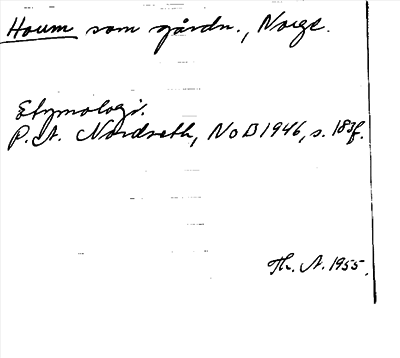 Houm som gårdn., Norge.
Etymologi.
P. A. Nordseth, NoD 1946, s. 183f.
Th. A. 1955.